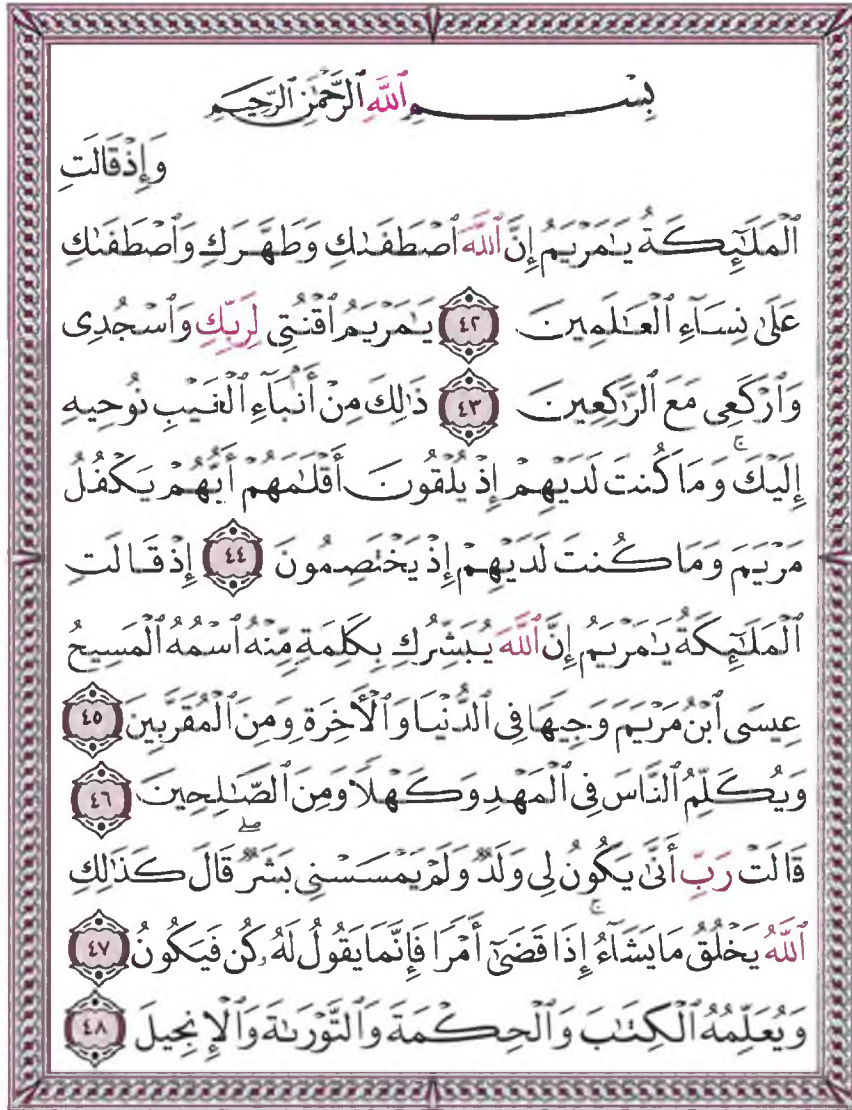 بِسْمِ ٱللَّهِ ٱلرَّحْمَٰنِ ٱلرَّحِيمِ
وَإِذْ قَالَتِ
ٱلْمَلَٰٓئِكَةُ يَٰمَرْيَمُ إِنَّ ٱللَّهَ ٱصْطَفَىٰكِ وَطَهَّرَكِ وَٱصْطَفَىٰكِ
عَلَىٰ نِسَآءِ ٱلْعَٰلَمِينَ ٤٢ يَٰمَرْيَمُ ٱقْنُتِى لِرَبِّكِ وَٱسْجُدِى
وَٱرْكَعِى مَعَ ٱلرَّٰكِعِينَ ٤٣ ذَٰلِكَ مِنْ أَنۢبَآءِ ٱلْغَيْبِ نُوحِيهِ
إِلَيْكَ ۚ وَمَا كُنتَ لَدَيْهِمْ إِذْ يُلْقُونَ أَقْلَٰمَهُمْ أَيُّهُمْ يَكْفُلُ
مَرْيَمَ وَمَا كُنتَ لَدَيْهِمْ إِذْ يَخْتَصِمُونَ ٤٤ إِذْ قَالَتِ
ٱلْمَلَٰٓئِكَةُ يَٰمَرْيَمُ إِنَّ ٱللَّهَ يُبَشِّرُكِ بِكَلِمَةٍ مِّنْهُ ٱسْمُهُ ٱلْمَسِيحُ
عِيسَى ٱبْنُ مَرْيَمَ وَجِيهًا فِى ٱلدُّنْيَا وَٱلْءَاخِرَةِ وَمِنَ ٱلْمُقَرَّبِينَ ٤٥
وَيُكَلِّمُ ٱلنَّاسَ فِى ٱلْمَهْدِ وَكَهْلًا وَمِنَ ٱلصَّٰلِحِينَ ٤٦
قَالَتْ رَبِّ أَنَّىٰ يَكُونُ لِى وَلَدٌ وَلَمْ يَمْسَسْنِى بَشَرٌ ۖ قَالَ كَذَٰلِكِ
ٱللَّهُ يَخْلُقُ مَا يَشَآءُ ۚ إِذَا قَضَىٰٓ أَمْرًا فَإِنَّمَا يَقُولُ لَهُۥ كُن فَيَكُونُ ٤٧
وَيُعَلِّمُهُ ٱلْكِتَٰبَ وَٱلْحِكْمَةَ وَٱلتَّوْرَىٰةَ وَٱلْإِنجِيلَ ٤٨